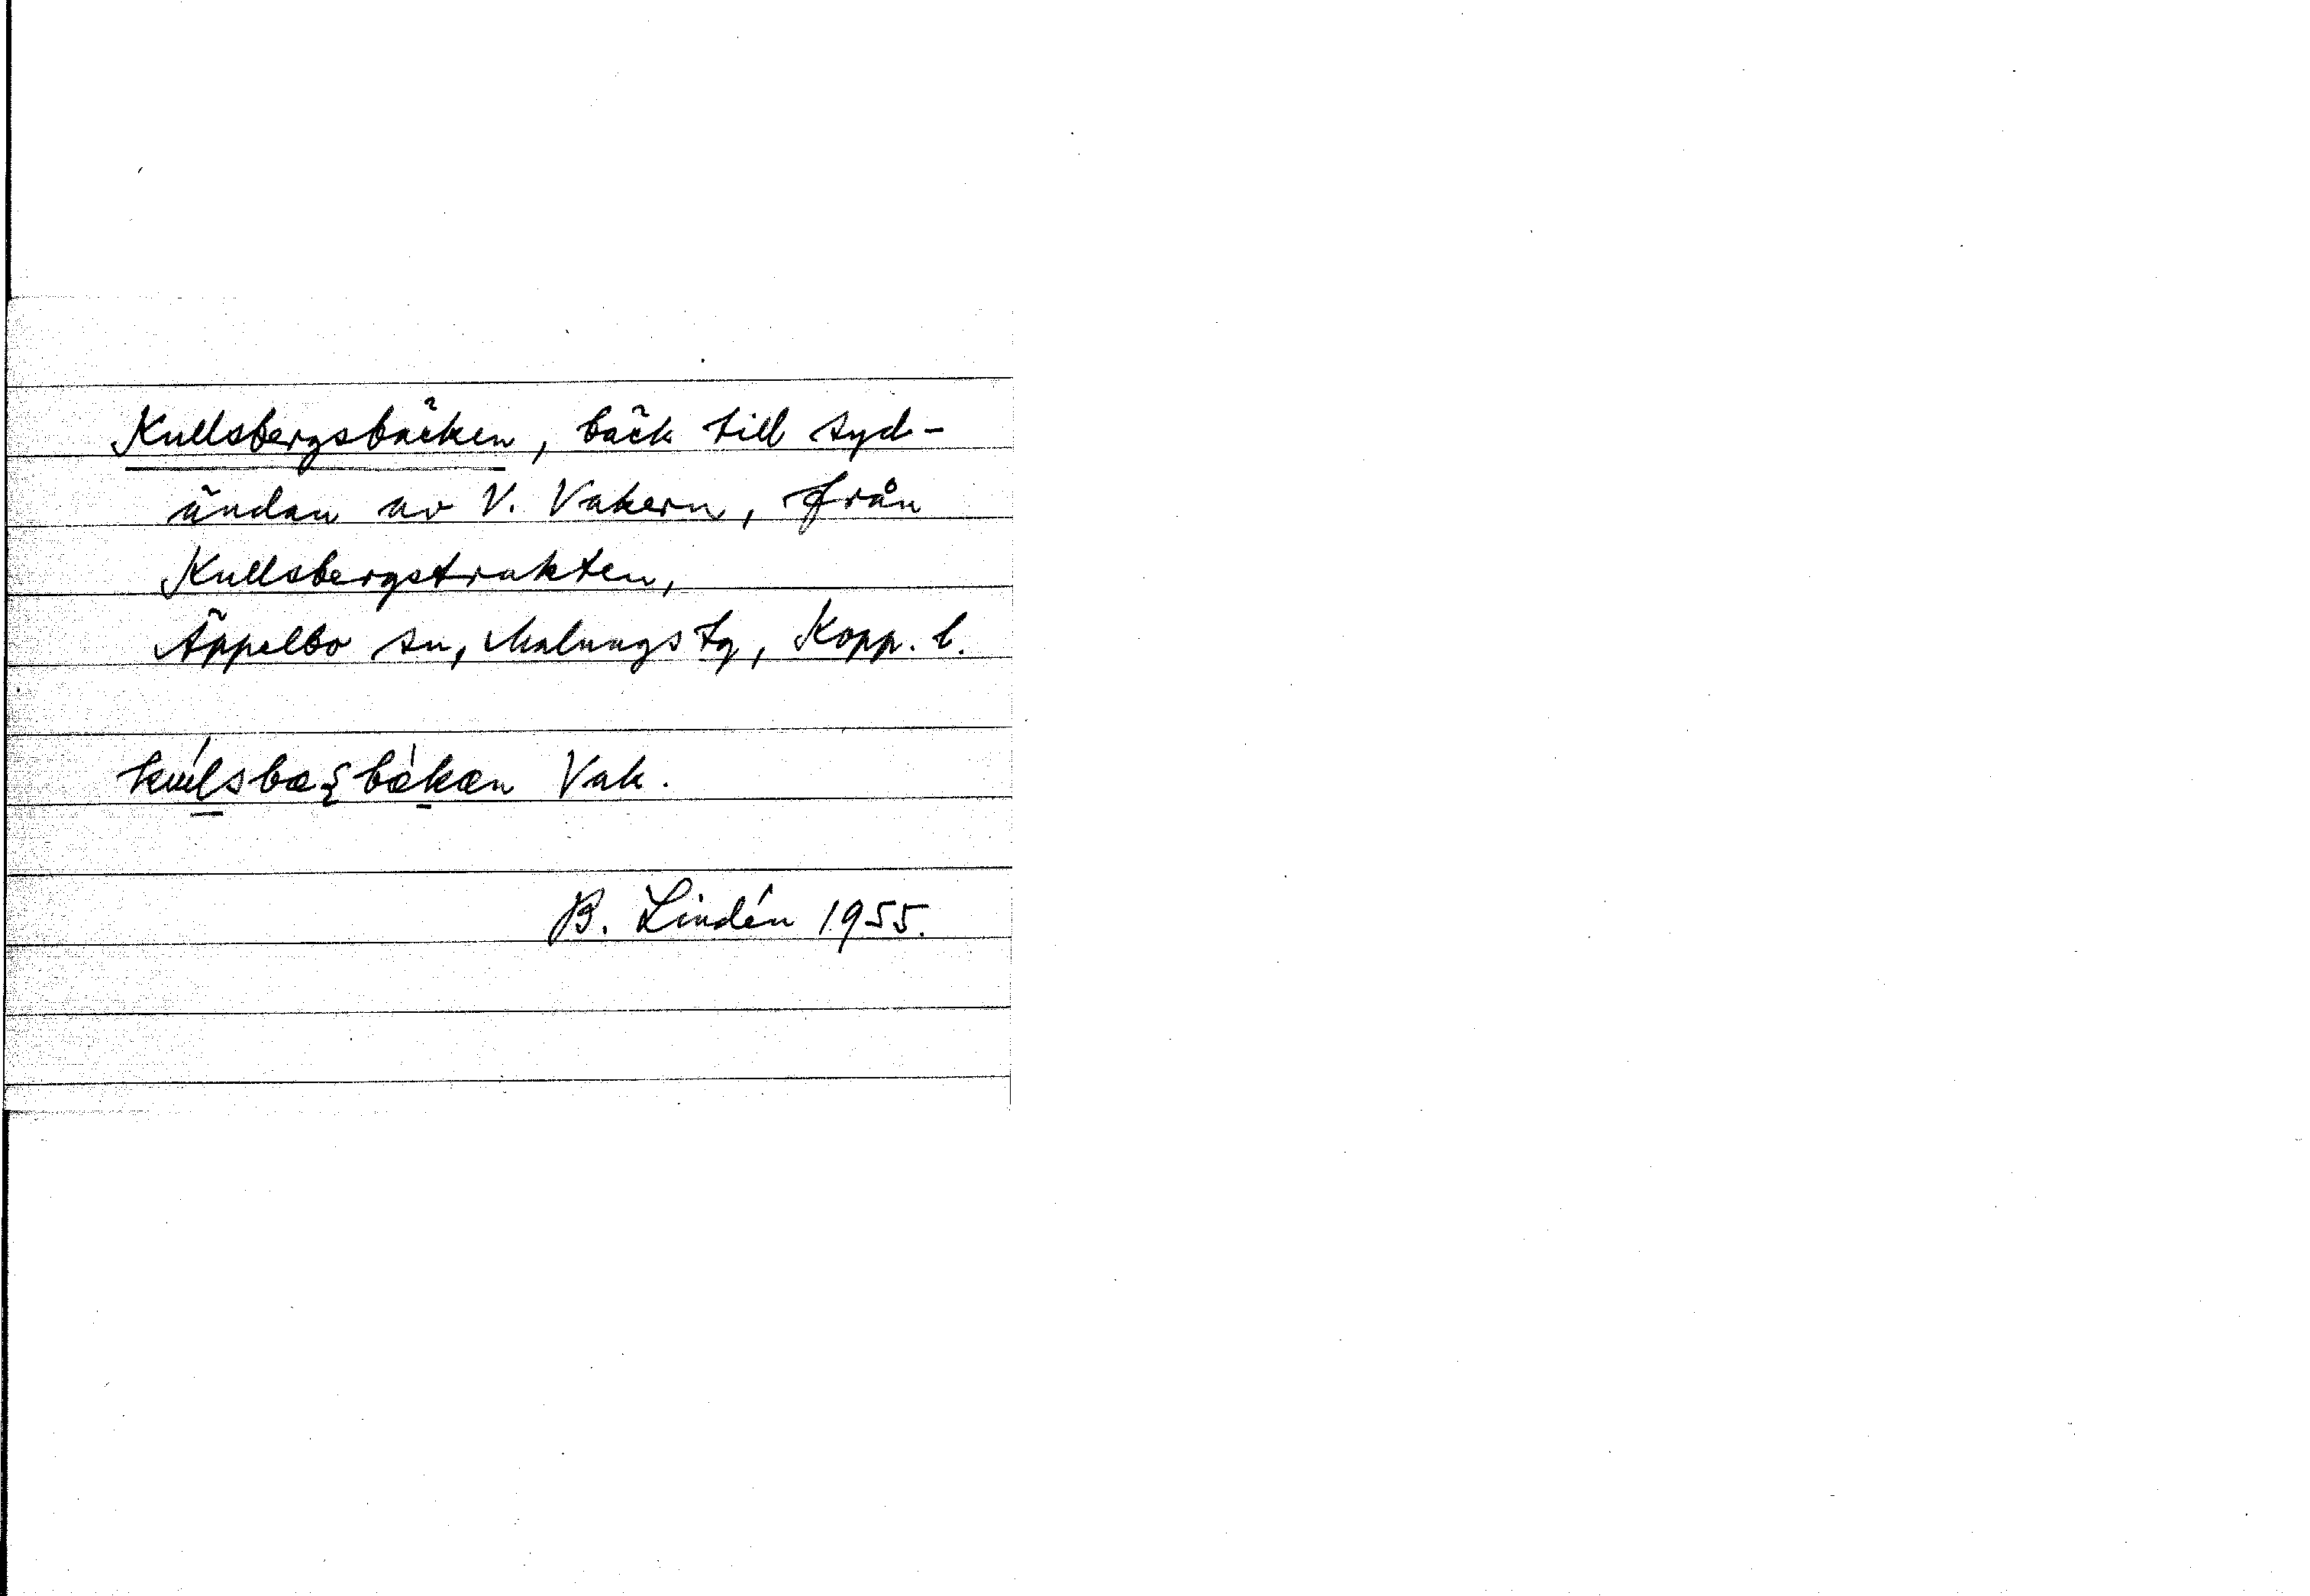 Kullsbergsbäcken, bäck till syd-
ändan av V. Vakern, från
Kullsbergstrakten,
Äppelbo sn, Malungs tg, Kopp. l.
Vak.
B. Lindén 1955.